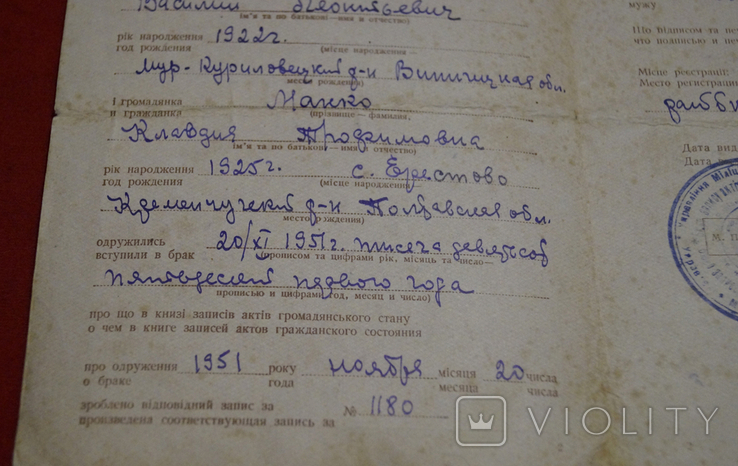 Василий Леонтьевич
(ім'я та по батькові—имя и отчество)
рік народження 1922г.
год рождения (місце народження—
Мур-Куриловецкий р-н Винницкая обл.
место рождения)
і громадянка Манко
и гражданка (прізвище—фамилия,
Клавдия Трофимовна
ім'я та по батькові—имя и отчество)
рік народження 1925г. с. Еристово
год рождения (місце народження—
Кременчугский р-н Полтавская обл.
место рождения)
одружились 20/XI 1951г. тысяча девятьсот
вступили в брак прописом та цифрами рік, місяць та число—
пятьдесят первого года
прописью и цифрами год, месяц и число)
про що в князі записів актів громадянського стану
о чем в книге записей актов гражданского состояния
про одруження 1951 року ноября місяця 20 числа
о браке года месяца числа
зроблено відповідний запис за № 1180
произведена соответствующая запись за
мужу
Що підписом та пе
что подписью и печ
Місце реєстрації:
Место регистраци
Дата вид
Дата в
М. П
VIOLITY